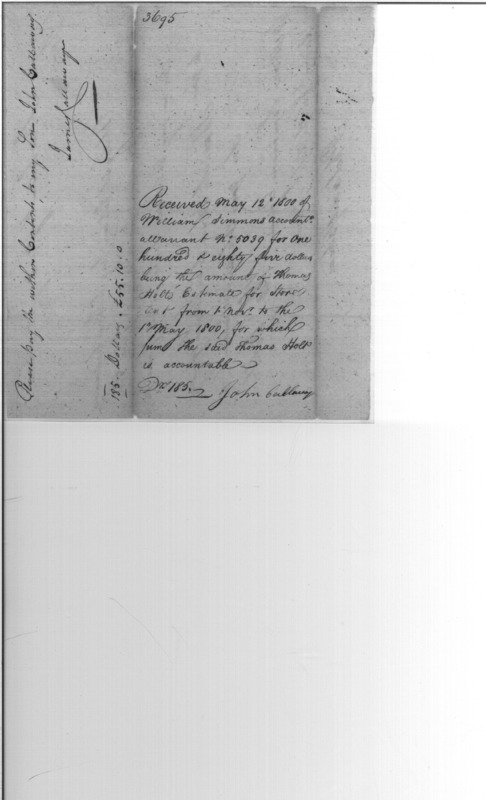 3695
Please pay the within Contents to my Son John Callaway
James Callaway
185 Dollars £55.10.0
Received May 12th 1800 of
William Simmons account.t
a Warrant No. 5039 for One
hundred & eighty five dollars
being the amount of Thomas
Holts Estimate for Store
from 1 Novr. to the
1st May 1800, for which
sum the said Thomas Holt
is accountable
Drs 185.
John Callaway